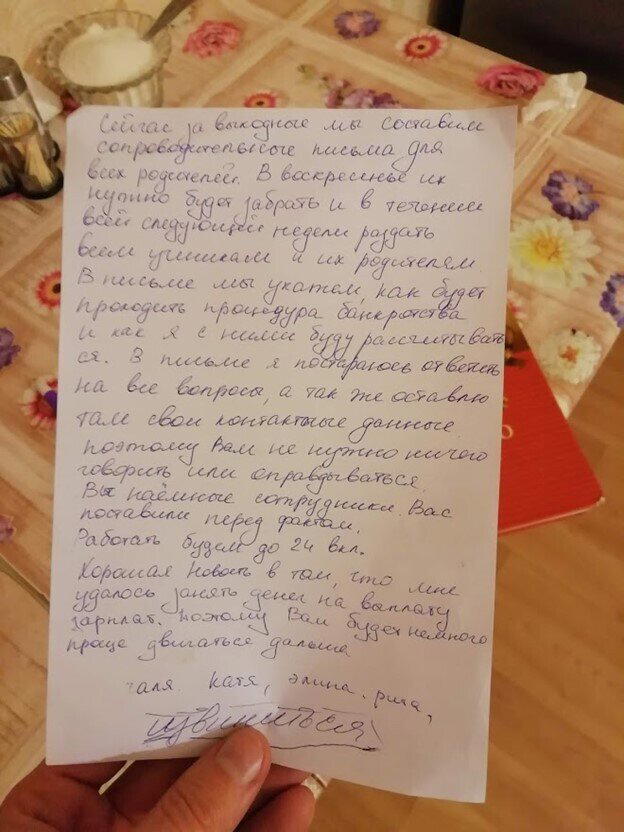 Сейчас за выходные мы составим
сопроводительные письма для
всех родителей. В воскресенье их
нужно будет забрать и в течении
всей следующей недели раздать
всем ученикам и их родителям.
В письме мы укажем, как будет
проходить процедура банкротства
и как я с ними буду рассчитывать
ся. В письме я постараюсь ответить
на все вопросы, а так же оставлю
там свои контактные данные.
поэтому Вам не нужно ничего
говорить или оправдываться.
Вы наёмные сотрудники. Вас
поставили перед фактом.
Работать будем до 24 вкл.
Хорошая новость в том, что мне
удалось занять денег на выплату
зарплат. Поэтому Вам будет немного
проще двигаться дальше
аля. Катя, Элина. рита,
извиниться